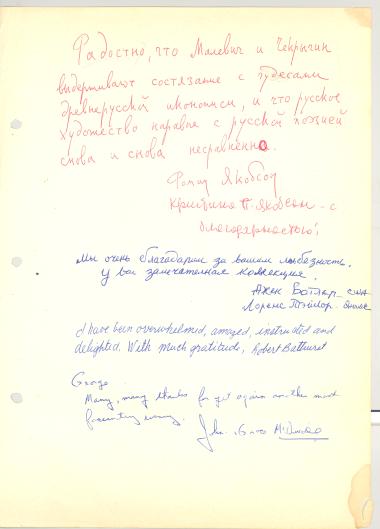 Радостно, что Малевич и Чекрыгин
выдерживают состязание с чудесами
древнерусской иконописи, и что русское
художество наравне с русской поэзией
снова и снова несравненно.
Роман Якобсон
Кристина П. Якобсон - с
благодарностью!
Мы очень благодарим за вашим любезность.
У вас замечательная коллекция.
Джек Ватлар - США
Лоренс Тэйлор -
I have been overwhelmed, amazed, instructed and
delighted. With much gratitude, Robert Bathurst
George
Many, many thanks for yet again another most
fascinating evening.